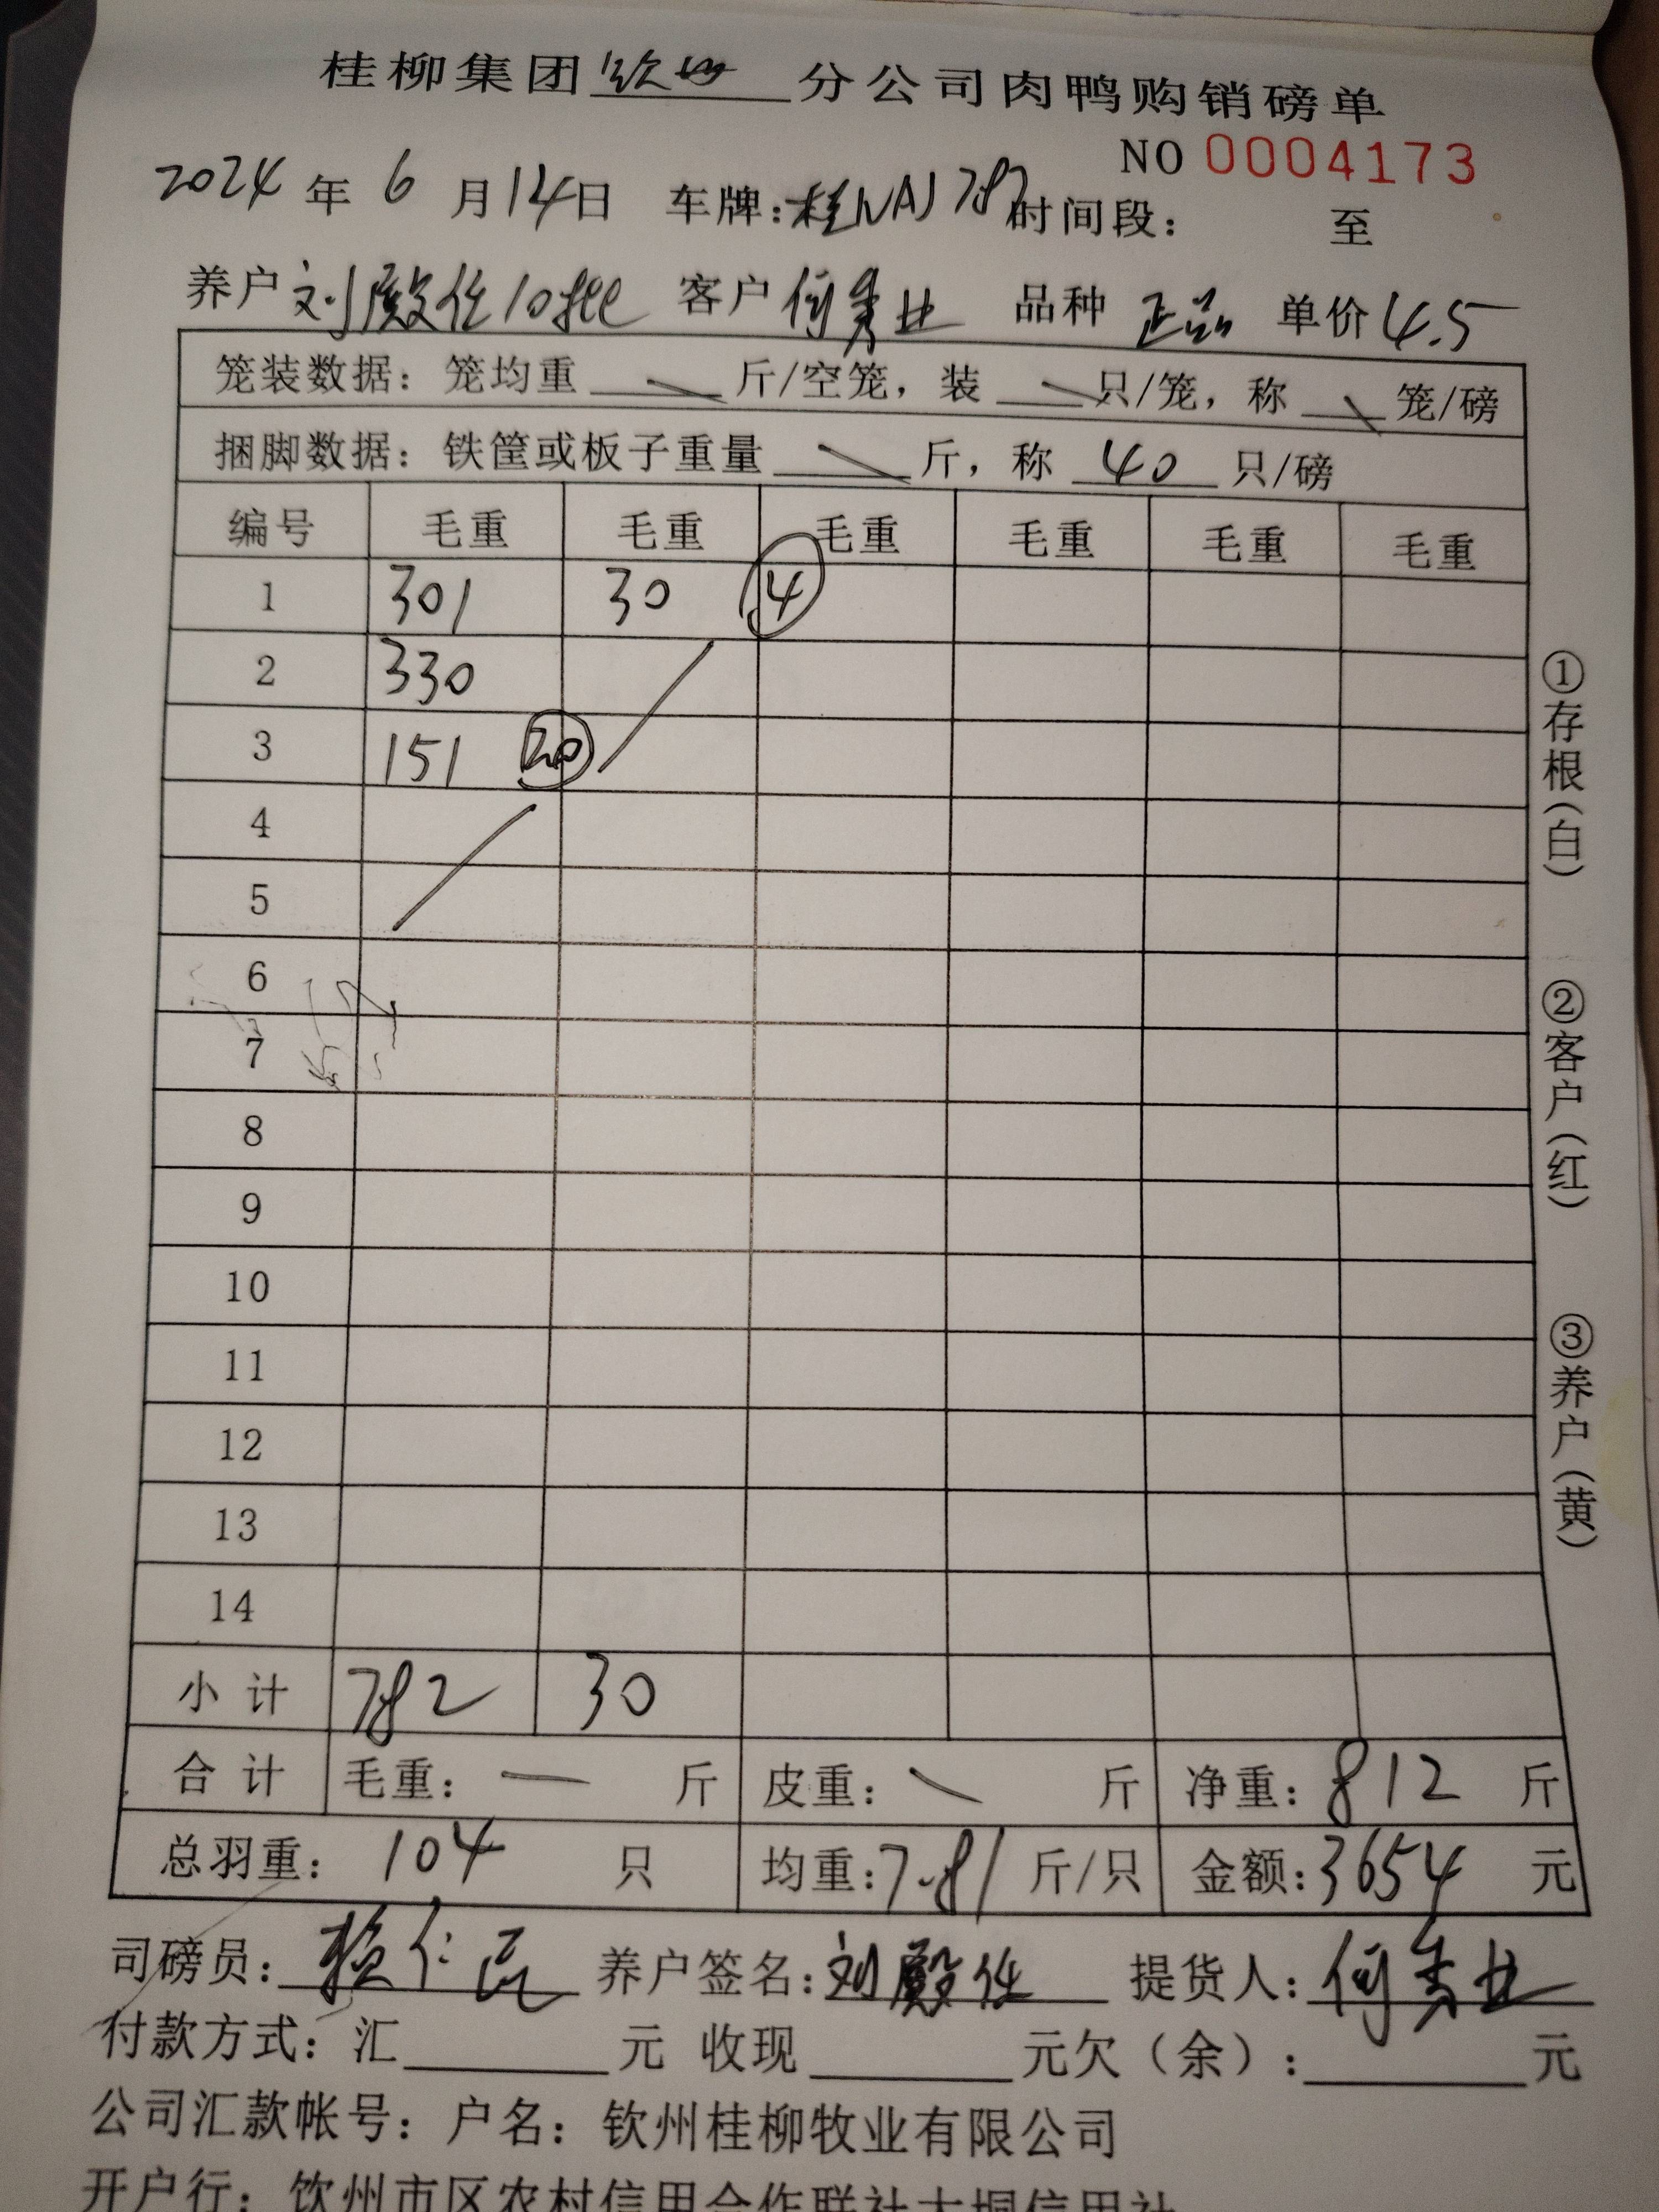 桂柳集团 钦州 分公司肉鸭购销磅单
NO 0004173
2024 年 6 月 14 日 车牌: 桂NAJ787 时间段: 至
养户 刘殿任10批 客户 何秀业 品种 正品 单价 4.5
笼装数据: 笼均重 斤/空笼, 装 只/笼, 称 笼/磅
捆脚数据: 铁筐或板子重量 斤, 称 40 只/磅
编号 毛重 毛重 毛重 毛重 毛重 毛重
1 301 30 4
2 330
3 151 20
4
5
6
7
8
9
10
11
12
13
14
小计 782 30
合计 毛重: 一 斤 皮重: 斤 净重: 812 斤
总羽重: 104 只 均重: 7.81 斤/只 金额: 3654 元
司磅员: 养户签名: 刘殿任 提货人: 何秀业
付款方式: 汇 元 收现 元欠(余): 元
公司汇款帐号: 户名: 钦州桂柳牧业有限公司
开户行: 钦州市区农村信用合作联社大垌信用社
①存根(白)
②客户(红)
③养户(黄)